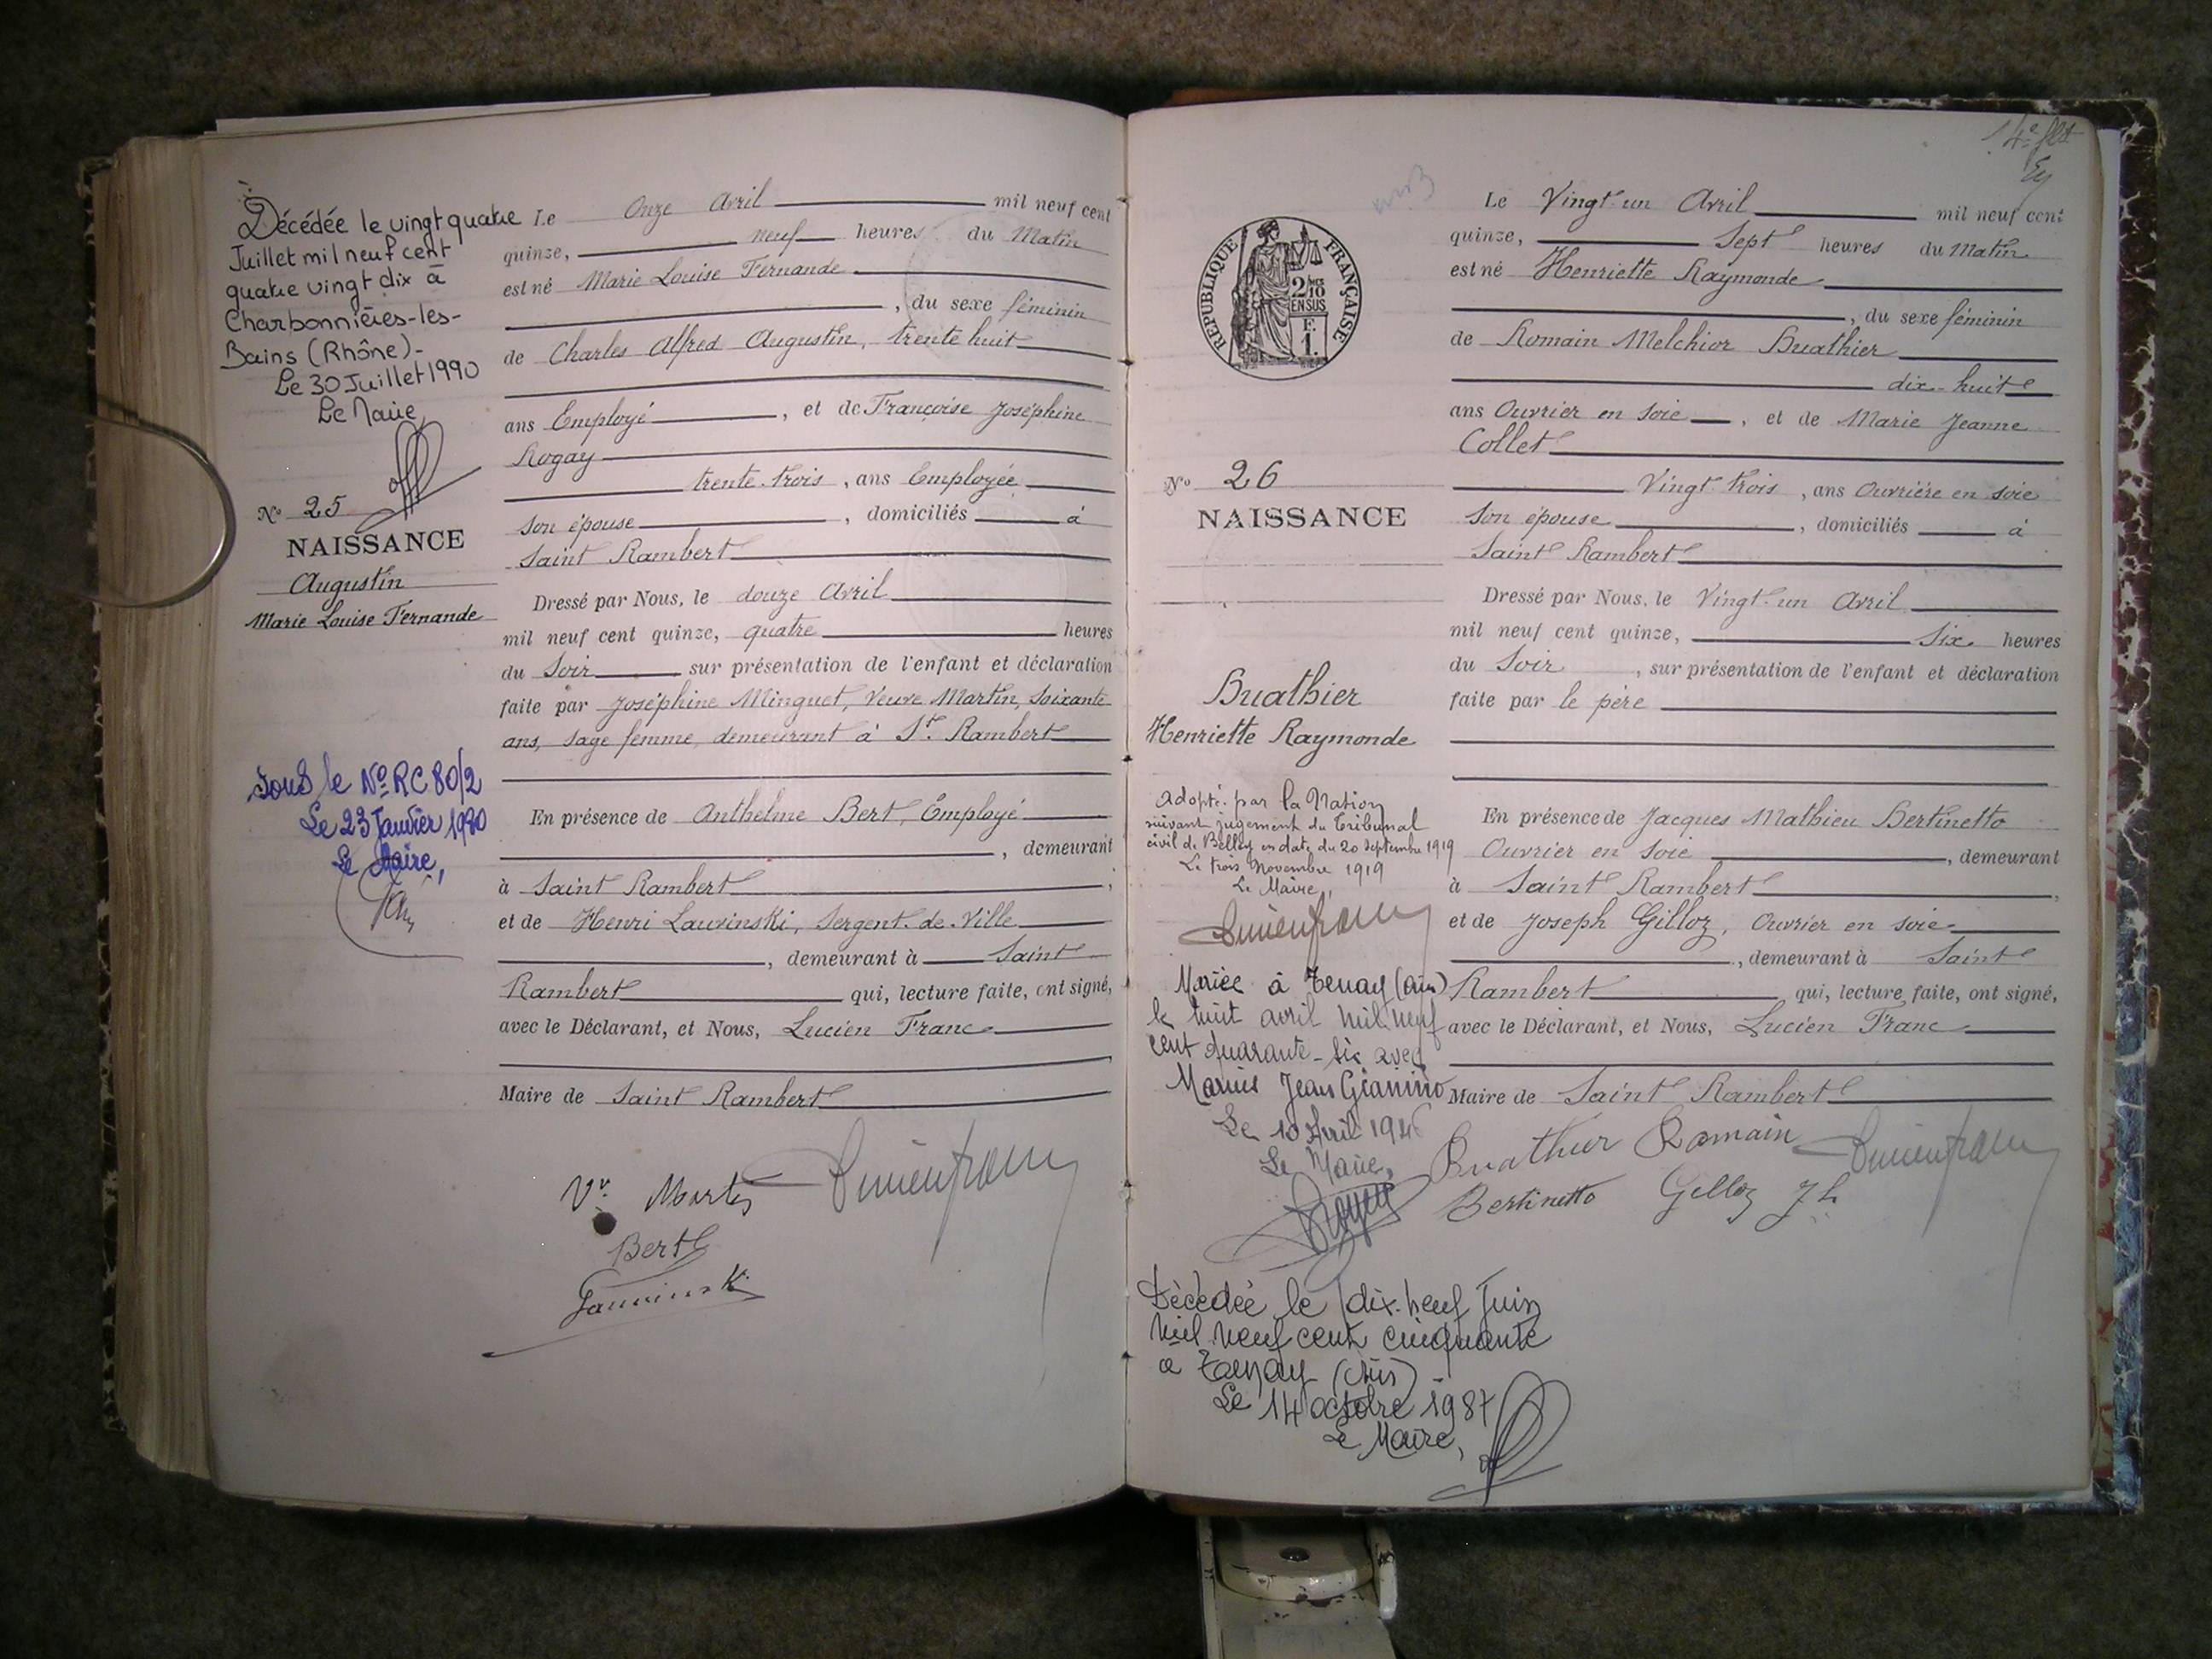 Décédée le vingt quatre
Juillet mil neuf cent
quatre vingt dix à
Charbonnières-les-
Bains (Rhône)-
Le 30 Juillet 1990
Le Maire
No 25
NAISSANCE
Augustin
Marie Louise Fernande
Sous le No RC 80/2
Le 23 Janvier 1980
Le Maire,
Le Onze Avril mil neuf cent
quinze, neuf heures du Matin
est né Marie Louise Fernande
, du sexe féminin
de Charles Alfred Augustin, trente huit
ans Employé, et de Françoise Joséphine
Rogay
trente-trois, ans Employée
son épouse, domiciliés à
Saint Rambert
Dressé par Nous, le douze Avril
mil neuf cent quinze, quatre heures
du Soir sur présentation de l'enfant et déclaration
faite par Joséphine Minguet, Veuve Martin, soixante
ans, sage femme, demeurant à St. Rambert
En présence de Anthelme Bert, Employé
, demeurant
à Saint Rambert,
et de Henri Lauvinski, Sergent-de-Ville
, demeurant à Saint
Rambert qui, lecture faite, ont signé,
avec le Déclarant, et Nous, Lucien Franc
Maire de Saint Rambert
Vve Martin Lucien franc
Bert
Lauvinski
14e flet
REPUBLIQUE FRANÇAISE
2/10 EN SUS
F. 1.
No 26
NAISSANCE
Buathier
Henriette Raymonde
Adopté par la Nation
suivant jugement du Tribunal
civil de Belley en date du 20 septembre 1919
Le trois Novembre 1919
Le Maire,
Lucien franc
Mariée à Tenay (Ain)
le huit avril mil neuf
cent quarante-six avec
Marius Jean Gianino
Le 10 Avril 1946
Le Maire,
Décédée le dix-neuf Juin
mil neuf cent cinquante
à Tenay (Ain)
Le 14 octobre 1987
Le Maire,
Le Vingt-un Avril mil neuf cent
quinze, Sept heures du Matin
est né Henriette Raymonde
, du sexe féminin
de Romain Melchior Buathier
dix-huit
ans Ouvrier en soie, et de Marie Jeanne
Collet
Vingt trois, ans Ouvrière en soie
Son épouse, domiciliés à
Saint Rambert
Dressé par Nous, le Vingt-un Avril
mil neuf cent quinze, Six heures
du Soir, sur présentation de l'enfant et déclaration
faite par le père
En présence de Jacques Mathieu Bertinetto
Ouvrier en Soie, demeurant
à Saint Rambert,
et de Joseph Gilloz, Ouvrier en soie
, demeurant à Saint
Rambert qui, lecture faite, ont signé,
avec le Déclarant, et Nous, Lucien Franc
Maire de Saint Rambert
Buathier Romain Lucien franc
Bertinetto Gilloz Jh